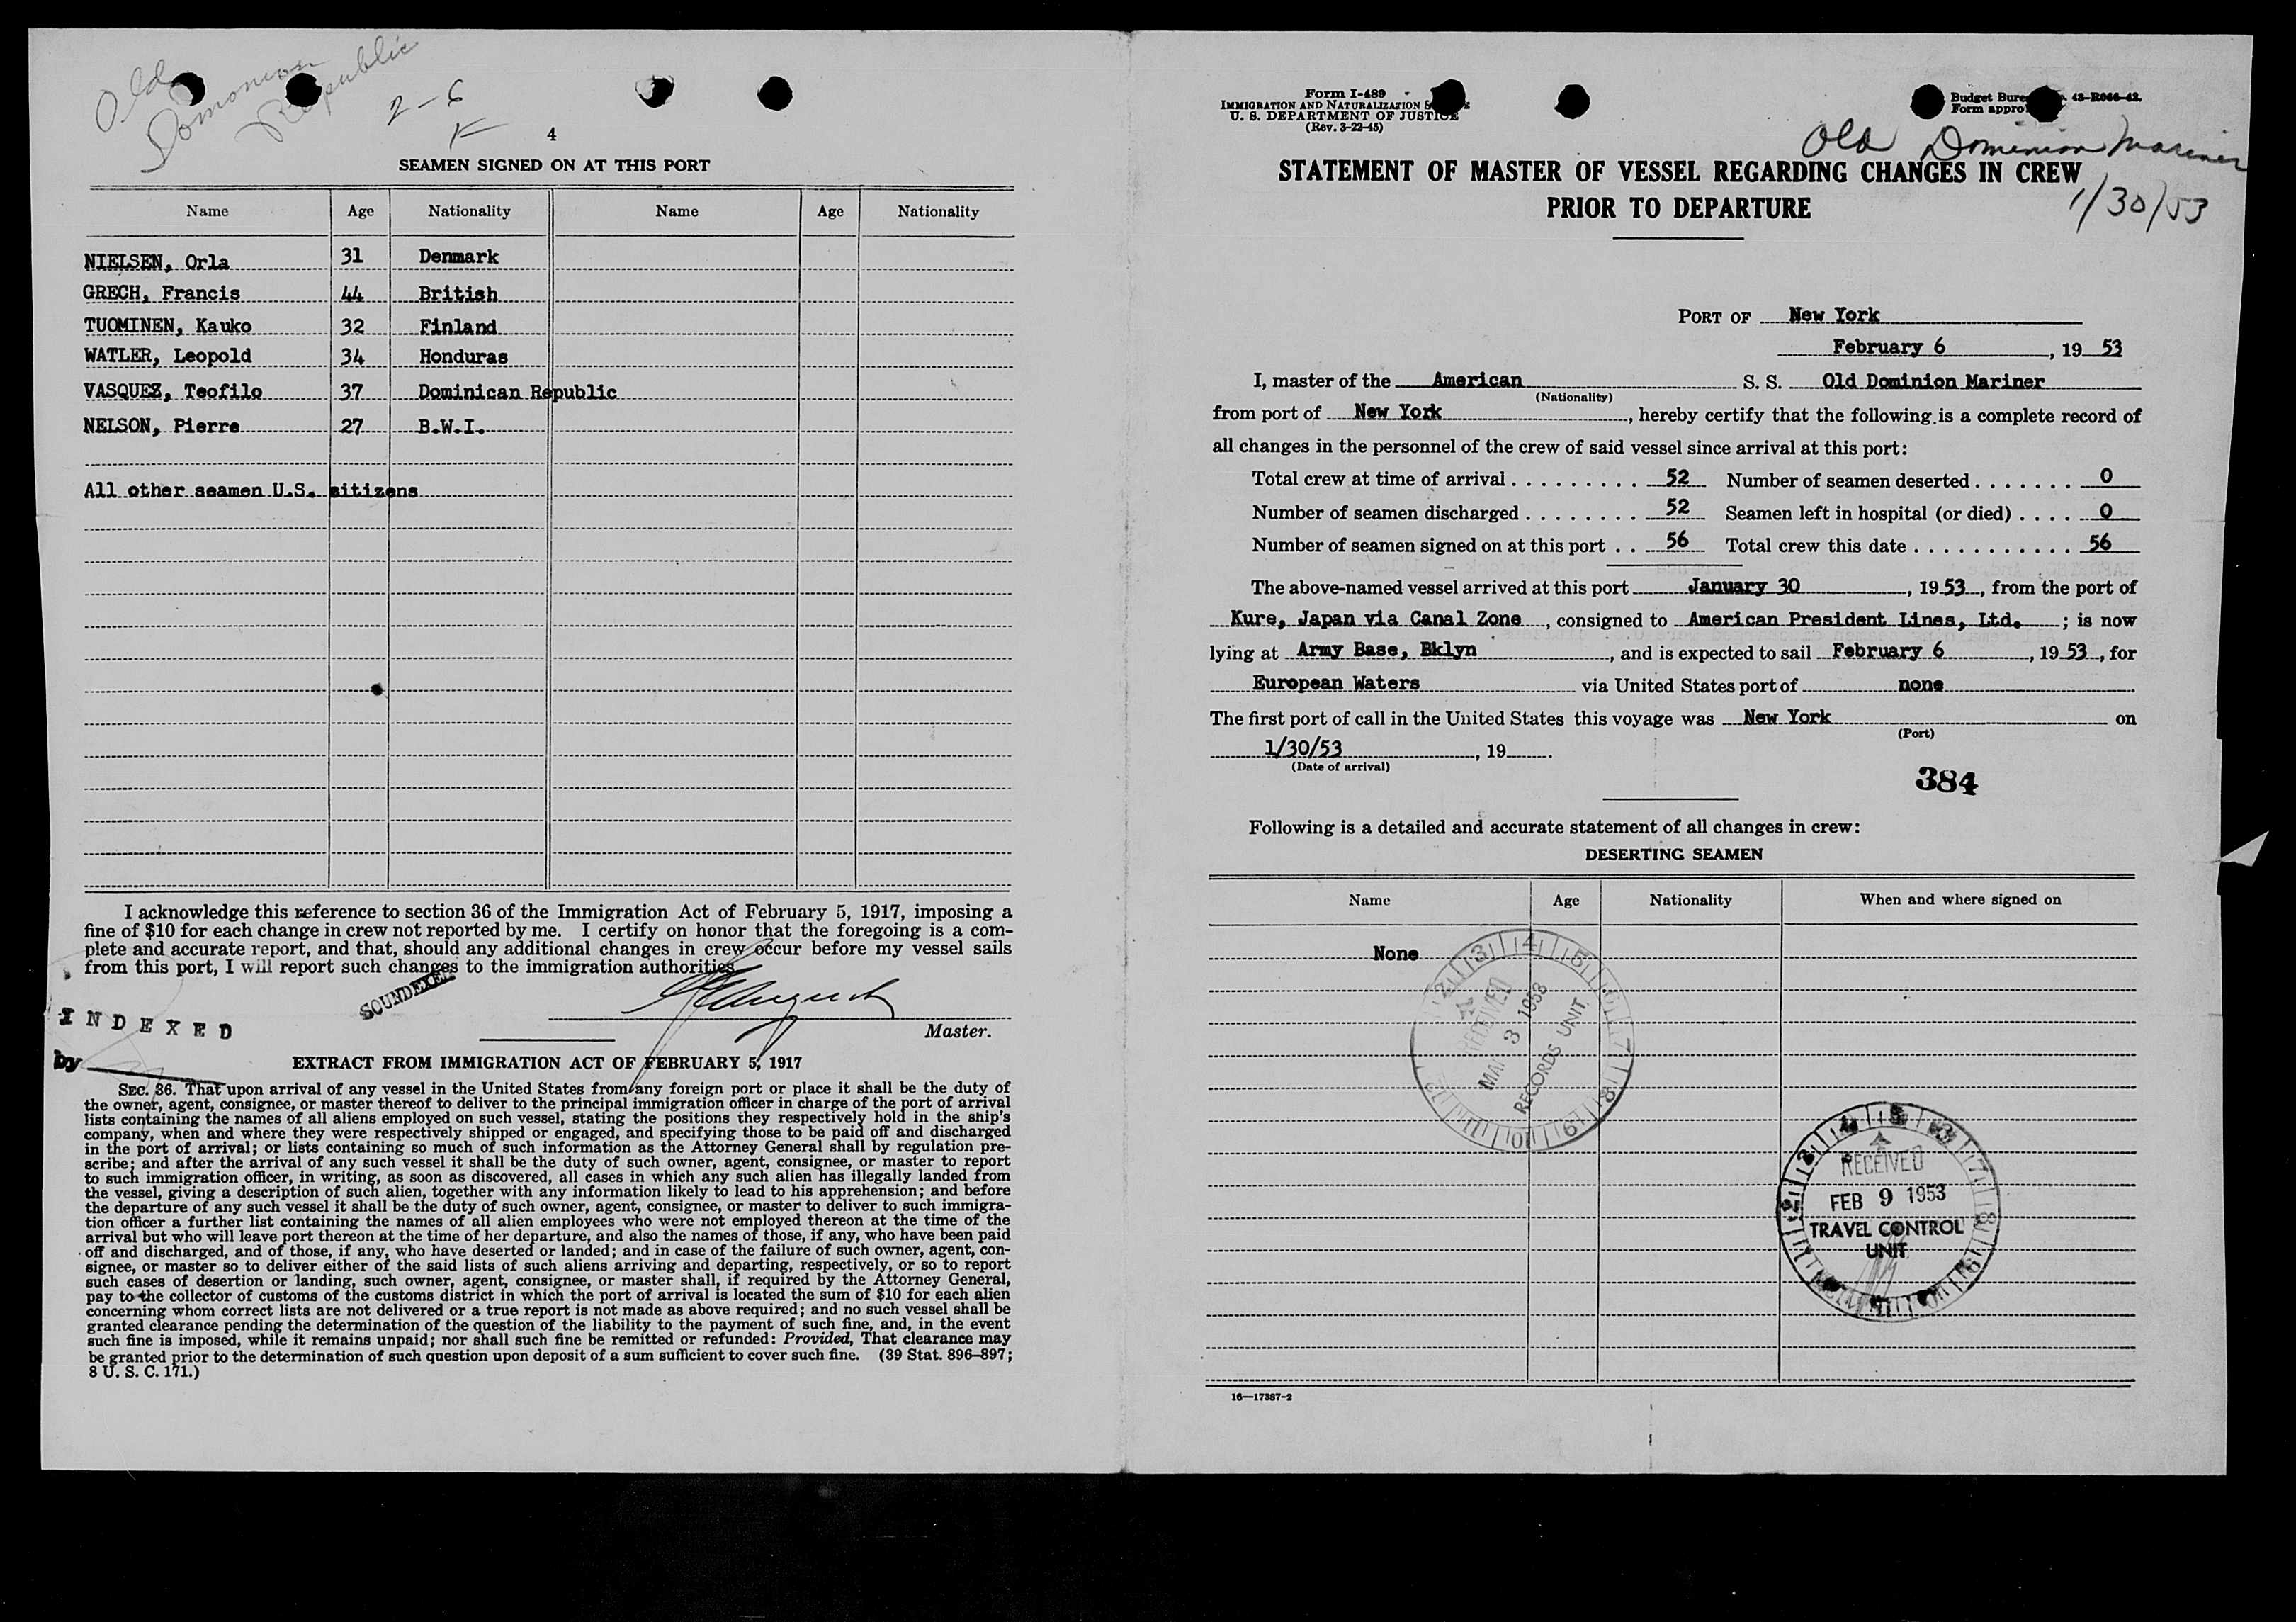 Old
Dominion
Republic
2-6
4
SEAMEN SIGNED ON AT THIS PORT
Name Age Nationality Name Age Nationality
NIELSEN, Orla 31 Denmark
GRECH, Francis 44 British
TUOMINEN, Kauko 32 Finland
WATLER, Leopold 34 Honduras
VASQUEZ, Teofilo 37 Dominican Republic
NELSON, Pierre 27 B.W.I.
All other seamen U.S. citizens
I acknowledge this reference to section 36 of the Immigration Act of February 5, 1917, imposing a
fine of $10 for each change in crew not reported by me. I certify on honor that the foregoing is a com-
plete and accurate report, and that, should any additional changes in crew occur before my vessel sails
from this port, I will report such changes to the immigration authorities.
SOUNDEXED
INDEXED
Master.
by
EXTRACT FROM IMMIGRATION ACT OF FEBRUARY 5, 1917
SEC. 36. That upon arrival of any vessel in the United States from any foreign port or place it shall be the duty of
the owner, agent, consignee, or master thereof to deliver to the principal immigration officer in charge of the port of arrival
lists containing the names of all aliens employed on such vessel, stating the positions they respectively hold in the ship's
company, when and where they were respectively shipped or engaged, and specifying those to be paid off and discharged
in the port of arrival; or lists containing so much of such information as the Attorney General shall by regulation pre-
scribe; and after the arrival of any such vessel it shall be the duty of such owner, agent, consignee, or master to report
to such immigration officer, in writing, as soon as discovered, all cases in which any such alien has illegally landed from
the vessel, giving a description of such alien, together with any information likely to lead to his apprehension; and before
the departure of any such vessel it shall be the duty of such owner, agent, consignee, or master to deliver to such immigra-
tion officer a further list containing the names of all alien employees who were not employed thereon at the time of the
arrival but who will leave port thereon at the time of her departure, and also the names of those, if any, who have been paid
off and discharged, and of those, if any, who have deserted or landed; and in case of the failure of such owner, agent, con-
signee, or master so to deliver either of the said lists of such aliens arriving and departing, respectively, or so to report
such cases of desertion or landing, such owner, agent, consignee, or master shall, if required by the Attorney General,
pay to the collector of customs of the customs district in which the port of arrival is located the sum of $10 for each alien
concerning whom correct lists are not delivered or a true report is not made as above required; and no such vessel shall be
granted clearance pending the determination of the question of the liability to the payment of such fine, and, in the event
such fine is imposed, while it remains unpaid; nor shall such fine be remitted or refunded: Provided, That clearance may
be granted prior to the determination of such question upon deposit of a sum sufficient to cover such fine. (39 Stat. 896–897;
8 U. S. C. 171.)
Form I-489
IMMIGRATION AND NATURALIZATION
U. S. DEPARTMENT OF JUSTICE
(Rev. 3-22-45)
Budget Bure 43-R066-42.
Form appro
Old Dominion Mariner
1/30/53
STATEMENT OF MASTER OF VESSEL REGARDING CHANGES IN CREW
PRIOR TO DEPARTURE
PORT OF New York
February 6, 19 53
I, master of the American S. S. Old Dominion Mariner
(Nationality)
from port of New York, hereby certify that the following is a complete record of
all changes in the personnel of the crew of said vessel since arrival at this port:
Total crew at time of arrival . . . . . . . . . 52 Number of seamen deserted . . . . . . . 0
Number of seamen discharged . . . . . . . . 52 Seamen left in hospital (or died) . . . . 0
Number of seamen signed on at this port . . 56 Total crew this date . . . . . . . . . . . . 56
The above-named vessel arrived at this port January 30, 19 53, from the port of
Kure, Japan via Canal Zone, consigned to American President Lines, Ltd.; is now
lying at Army Base, Bklyn, and is expected to sail February 6, 19 53, for
European Waters via United States port of none.
The first port of call in the United States this voyage was New York on
(Port)
1/30/53, 19 .
(Date of arrival)
384
Following is a detailed and accurate statement of all changes in crew:
DESERTING SEAMEN
Name Age Nationality When and where signed on
None
RECEIVED
MAR 3 1953
RECORDS UNIT
RECEIVED
FEB 9 1953
TRAVEL CONTROL
UNIT
16—17387-2